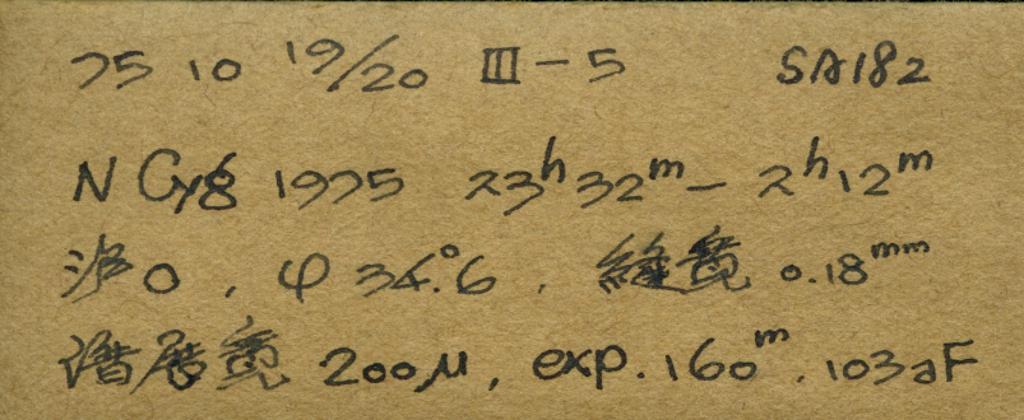 75 10 19/20 III-5 SA182
N Cyg 1975 23h32m - 2h12m
滤0, φ 34.°6, 縫宽 0.18mm
谱展宽 200μ, exp. 160m. 103aF